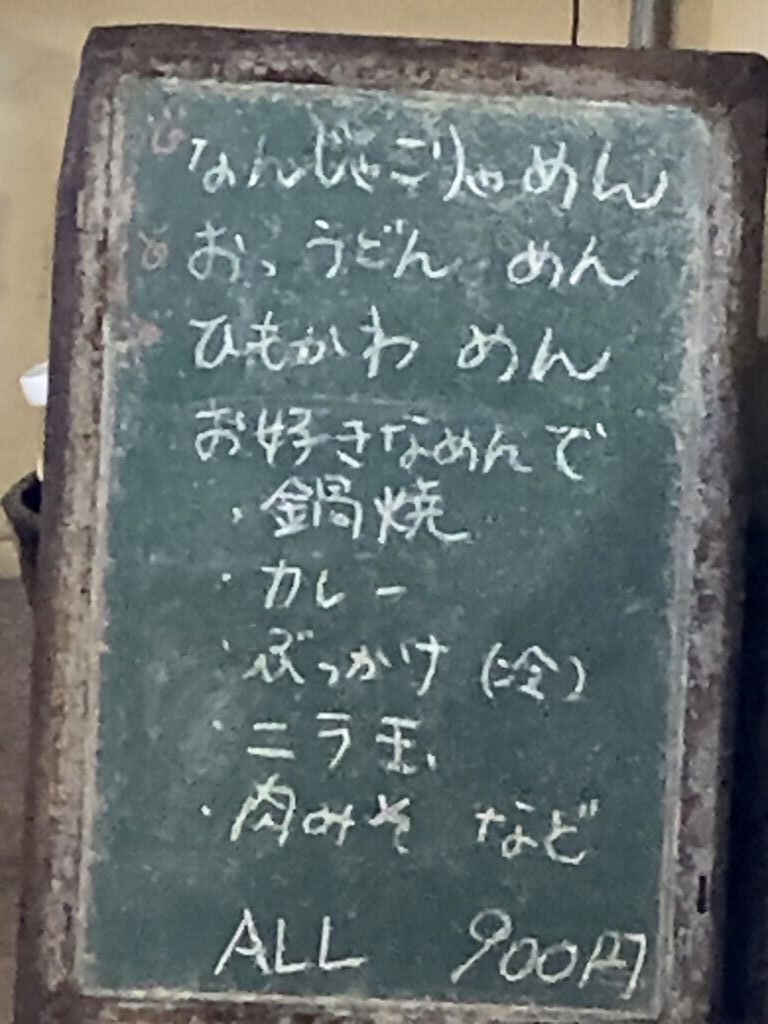 なんじゃこりゃめん
おっうどん めん
ひもかわ めん
お好きなめんで
・鍋焼
・カレー
・ぶっかけ (冷)
・ニラ玉
・肉みそ など
ALL 900円